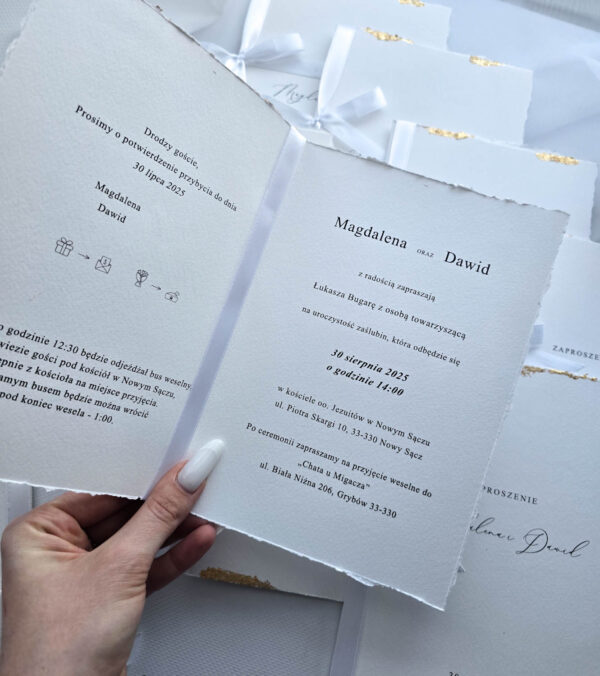 Drodzy goście,
Prosimy o potwierdzenie przybycia do dnia
30 lipca 2025
Magdalena
Dawid
o godzinie 12:30 będzie odjeżdżał bus weselny
wiezie gości pod kościół w Nowym Sączu,
ępnie z kościoła na miejsce przyjęcia.
amym busem będzie można wrócić
pod koniec wesela - 1:00.
Magdalena ORAZ Dawid
z radością zapraszają
Łukasza Bugarę z osobą towarzyszącą
na uroczystość zaślubin, która odbędzie się
30 sierpnia 2025
o godzinie 14:00
w kościele oo. Jezuitów w Nowym Sączu
ul. Piotra Skargi 10, 33-330 Nowy Sącz
Po ceremonii zapraszamy na przyjęcie weselne do
„Chata u Migacza”
ul. Biała Niżna 206, Grybów 33-330
ZAPROSZE
PROSZENIE
lena i Dawid